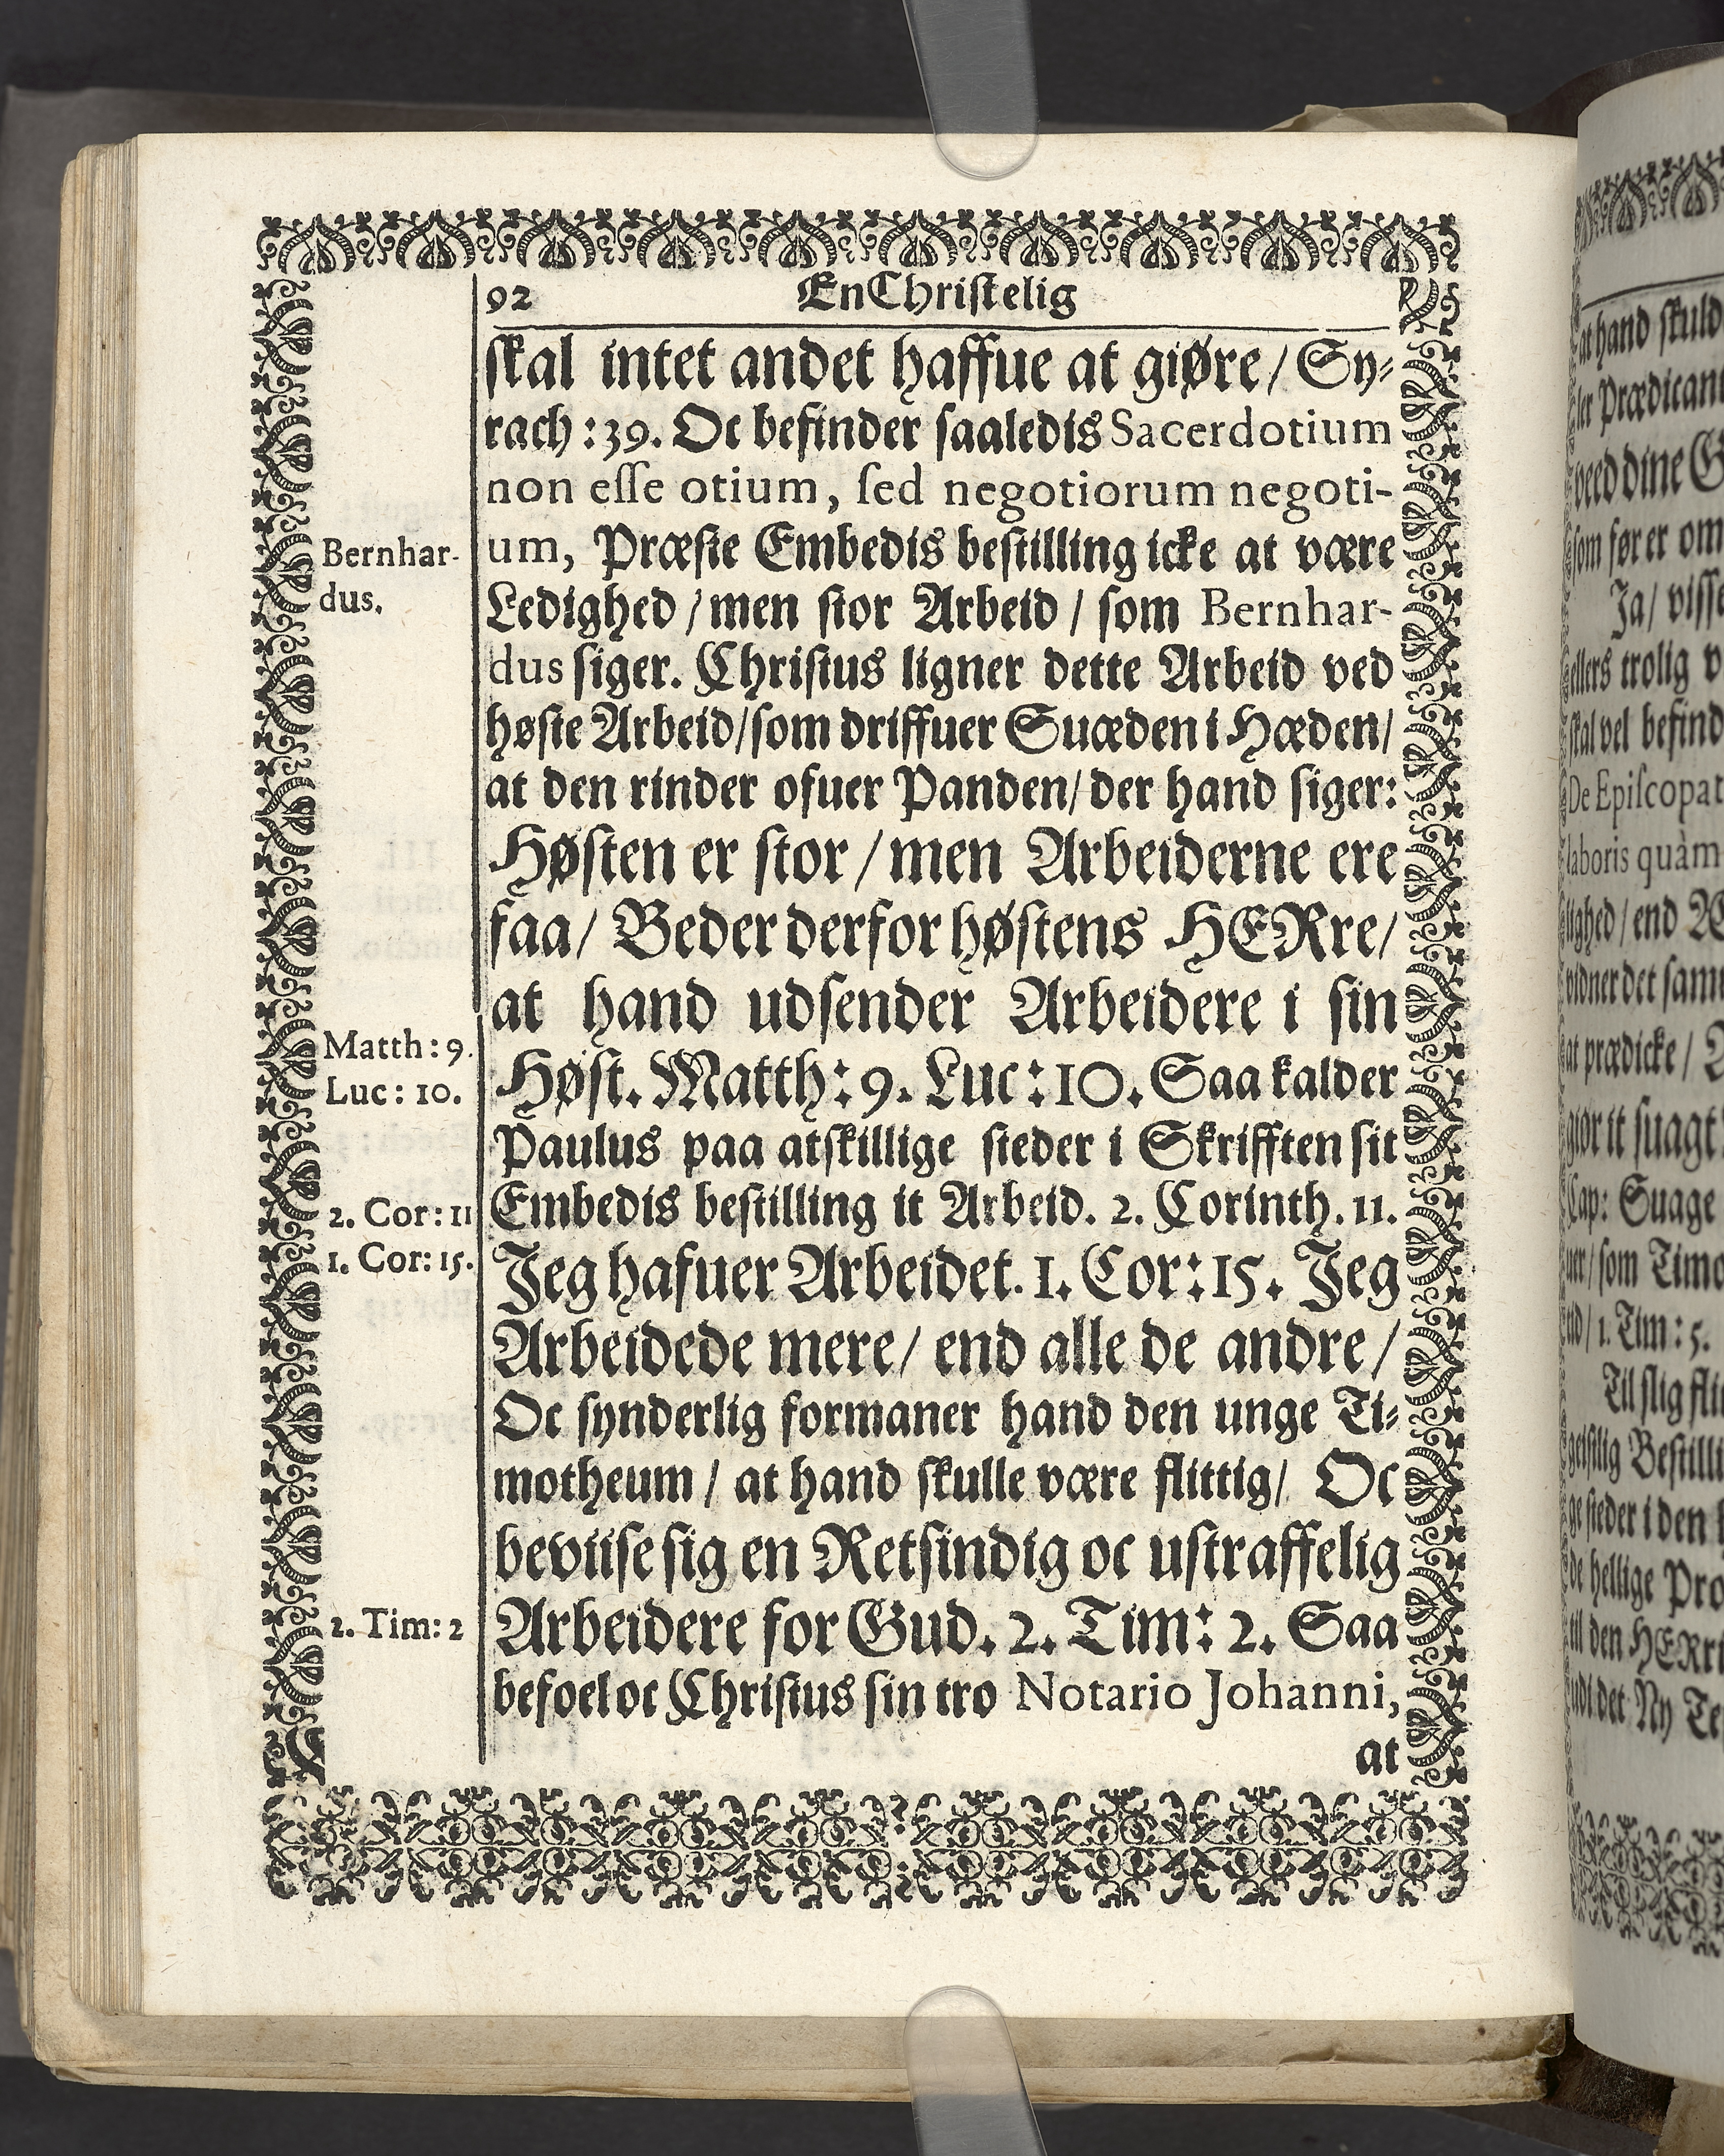 92 En Christelig
skal intet andet haffue at giøre/ Sy⸗
rach: 39. Oc befinder saaledis Sacerdotium
non esse otium, sed negotiorum negoti-
um, Præste Embedis bestilling icke at være
Ledighed / men stor Arbeid / som Bernhar-
dus siger. Christus ligner dette Arbeid ved
høste Arbeid/som driffuer Suæden i Hæden/
at den rinder ofuer Panden/ der hand siger:
Høsten er stor / men Arbeiderne ere
faa/ Beder derfor høstens HERre/
at hand udsender Arbeidere i sin
Høst. Matth: 9. Luc: 10. Saa kalder
Paulus paa atskillige steder i Skrifften sit
Embedis bestilling it Arbeid. 2. Corinth. 11.
Jeg hafuer Arbeidet. 1. Cor: 15. Jeg
Arbeidede mere/ end alle de andre/
Oc synderlig formaner hand den unge Ti⸗
motheum / at hand skulle være flittig/ Oc
beviise sig en Retsindig oc ustraffelig
Arbeidere for Gud. 2. Tim: 2. Saa
befoel oc Christus sin tro Notario Johanni,
at
Bernhar-
dus.
Matth: 9.
Luc: 10.
2. Cor: 11
1. Cor: 15.
2. Tim: 2
at hand skuld
ved dine
som fører om
Ja/ visse
ellers trolig
skal vel befind
De Episcopat
laboris quàm
lighed / end
vidner det sam
at prædicke /
giør it suagt
Cap: Suage
uer / som Timo
1. Tim: 5.
Til slig flit
geistlig Bestilli
ge steder i den
de hellige Pro
til den HERre
udi det Ny Te